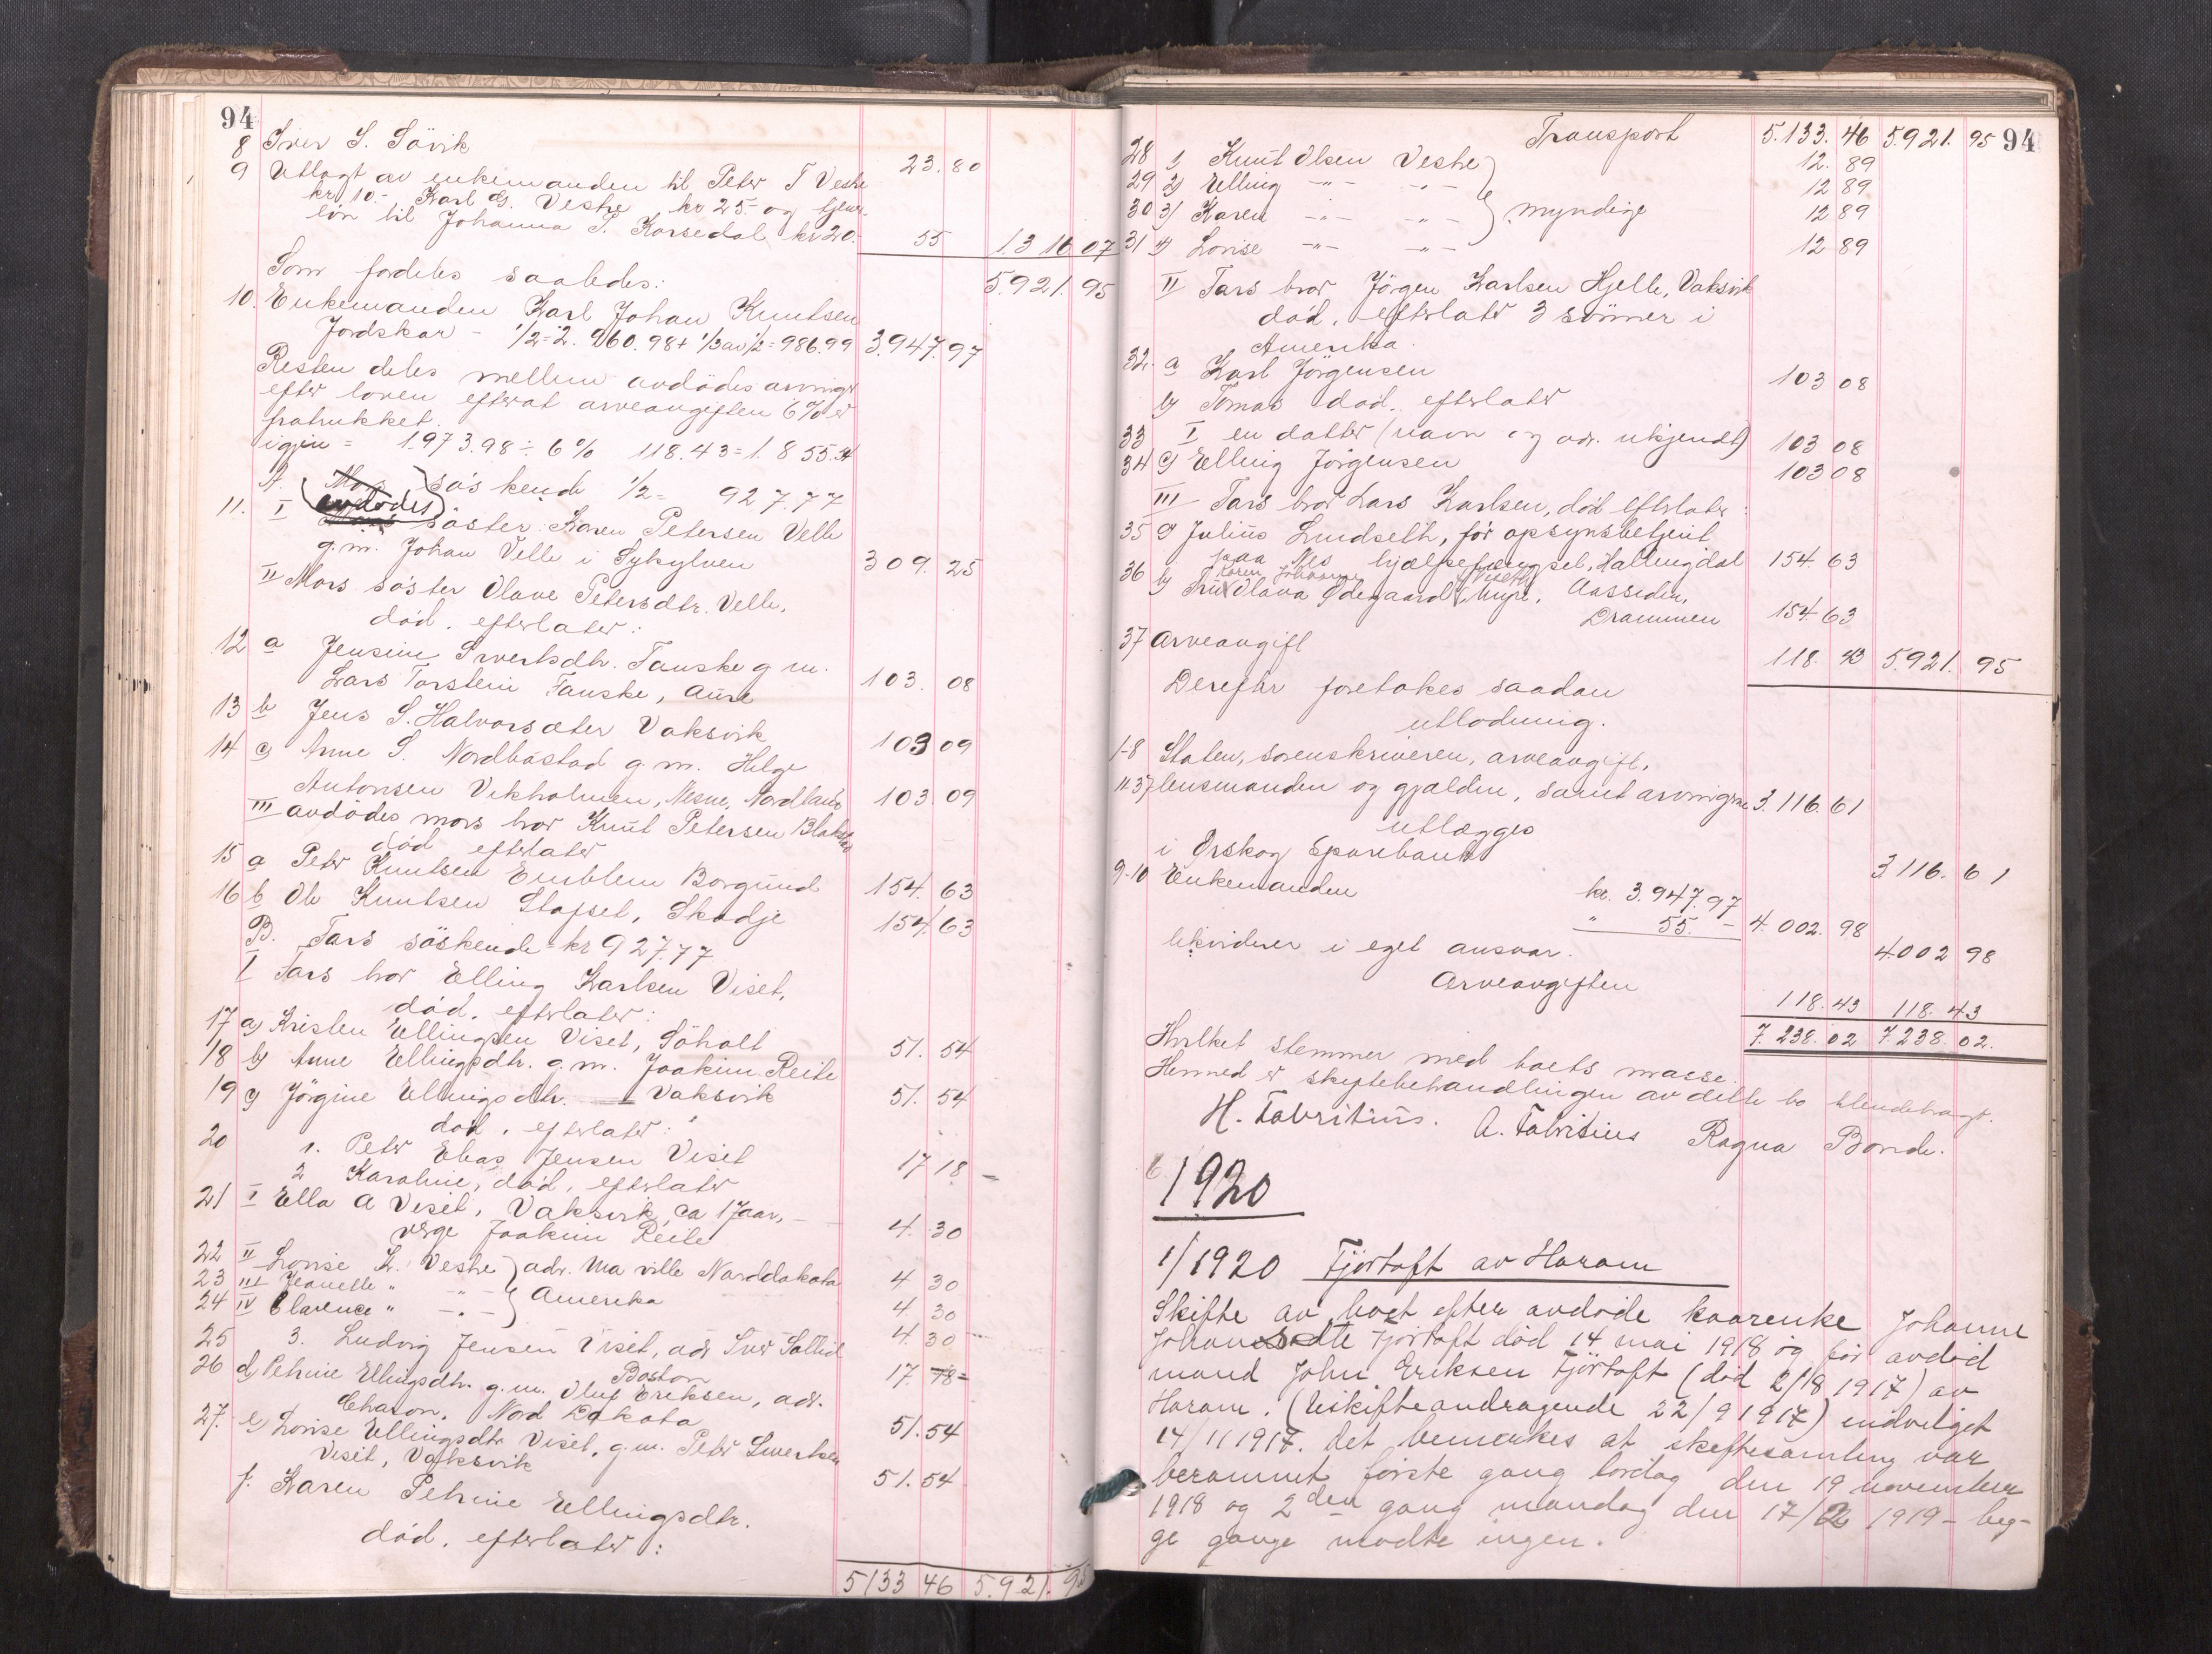 94
8 Iver S. Sövik 23.80
9 Utlagt av enkemanden til Peter T Vestre
kr 10.- Karl Ols. Vestre kr 25.- og tjener-
lön til Johanna P. Korsedal kr 20.- 55 1.316 07
Som fordeles saaledes: 5.921.95
10. Enkemanden Karl Johan Knutsen
Jordskar - 1/2 = 2.960.98 + 1/3 av 1/2 = 986.99 3.947.97
Resten deles mellem avdödes arvinger
efter loven efterat arveavgiften 6% er
fratrukket.
igjen = 1.973.98 ÷ 6% 118.43 = 1.855.54
A. söskende 1/2 = 927.77
11. I avdödes söster Karen Petersen Velle
g.m. Johan Velle i Sykylven 309.25
II Mors söster Olave Petersdtr. Velle,
död. efterlater:
12 a Jensine Sivertsdtr. Fauske g m.
Lars Torstein Fauske, Aure 103.08
13 b Jens S. Halvorsæter Vaksvik 103 09
14 c) Anne S. Nordböstad g.m. Helge
Antonsen Vikholmen, Nesne, Nordland 103.09
III avdödes mors bror Knut Petersen Blakstad
död efterlater
15 a Peter Knutsen Emblem Borgund 154.63
16 b Ole Knutsen Stafset, Skodje 154.63
B. Fars söskende = kr 927.77
I Fars bror Elling Karlsen Viset,
död. efterlater:
17 a) Kristen Ellingsen Viset, Söholt 51.54
18 b) Anne Ellingsdtr. g.m. Joakim Reite
19 c) Jörgine Ellingsdtr. Vaksvik 51.54
död. efterlater:
20 1. Peter Elias Jensen Viset 17 18 -
2 Karoline, död, efterlater
21 I Ella A Viset, Vaksvik ca 17 aar,
verge Joakim Reite 4.30
22 II Lovise K. Vestre } adr. Ma ville Norddakota 4 30
23 III Jeanette " -"- } Amerika 4.30
24 IV Clarence " -"- } 4.30
25 3. Ludvig Jensen Viset, adr Iver Sollid
Boston 17. 18 =
26 d) Petrine Ellingsdtr. g.m. Oluf Eriksen, adr.
Chason, Nord Dakota 51.54
27. e) Lovise Ellingsdtr Viset, g.m. Peter Sivertsen
Viset, Vaksvik 51.54
f. Karen Petrine Ellingsdtr.
död. efterlater:
5133 46 5.921.95
94
Transport 5.133.46 5.921.95
28 1) Knut Olsen Vestre } 12.89
29 2) Elling -"- -"- } 12 89
30 3) Karen -"- -"- } myndige 12 89
31 4) Lovise -"- -"- } 12 89
II Fars bror Jörgen Karlsen Hjelle, Vaksvik
död. efterlater 3 sönner i
Amerika.
32. a Karl Jörgensen 103 08
b) Tomas död. efterlater
33 I en datter (navn og adr. ukjendt) 103 08
34 c) Elling Jörgensen 103 08
III Fars bror Lars Karlsen, död efterlater:
35 a) Julius Lundseth, för opsynsbetjent
paa Nes hjælpefængsel, Hallingdal 154.63
Karen Johanne Viseth
36 b) Fru Olava Ødegaard, Mype, Aasseden,
Drammen 154.63
37 Arveavgift 118.43 5.921.95
Derefter foretokes saadan
utlodning.
1-8 Staten, sorenskriveren, arveavgift,
11-37 lensmanden og gjælden, samt arvingerne 3.116.61
utlægges
i Ørskog Sparebank 3116.61
9-10 Enkemanden kr. 3.947.97
" 55.- 4.002.98
likviderer i eget ansvar. 4002 98
Arveavgiften 118.43 118.43
7.238.02 7.238.02.
Hvilket stemmer med boets masse.
Hermed er skiftebehandlingen av dette bo tilendebragt.
H. Fabritius. A. Fabritius Ragna Bonde.
1920
1/1920 Fjörtoft av Haram
Skifte av boet efter avdöde kaarenke Johanne
Johansdtr Fjörtoft död 14 mai 1918 og för avdöd
mand John Eriksen Fjörtoft (död 2/18 1917) av
Haram. (Uskifteandragende 22/9 1917) indvilget
14/11 1917. Det bemerkes at skiftesamling var
berammet förste gang lördag den 19 november
1918 og 2den gang mandag den 17/2 1919 - beg-
ge gange mödte ingen.